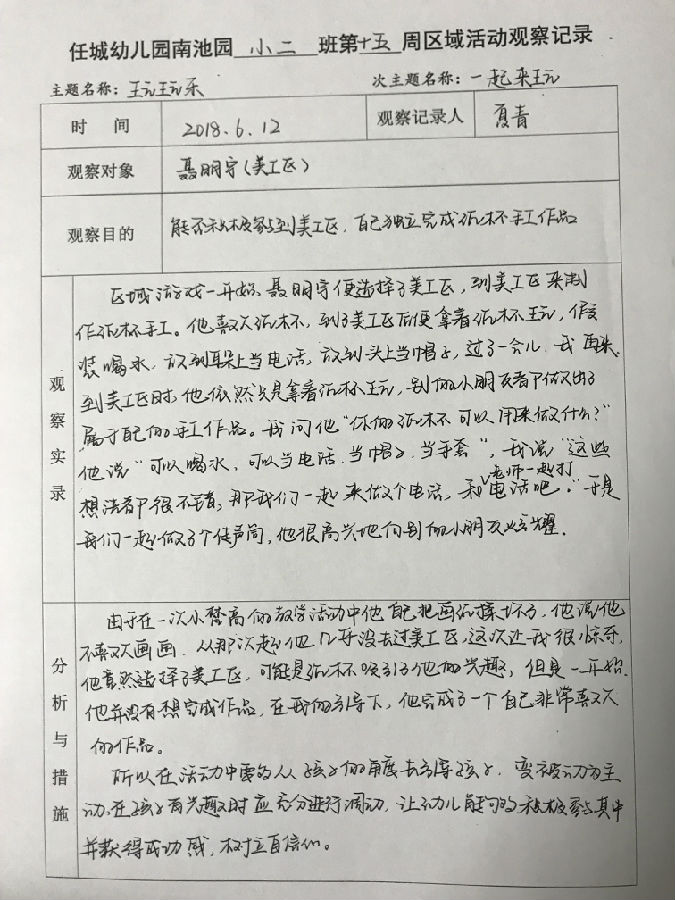 任城幼儿园南池园 小二 班第十五周区域活动观察记录
主题名称：玩玩乐 次主题名称：一起来玩
时 间 2018.6.12 观察记录人 夏青
观察对象 聂明宇（美工区）
观察目的 能否积极参与到美工区，自己独立完成纸杯手工作品
观察实录
区域游戏一开始，聂明宇便选择了美工区，到美工区来制
作纸杯手工。他喜欢纸杯，到了美工区后便拿着纸杯玩，假
装喝水，放到耳朵上当电话，放到头上当帽子，过了一会儿，我再来
到美工区时，他依然只是拿着纸杯玩，别的小朋友都做出了
属于自己的手工作品。我问他“你的纸杯可以用来做什么？”
他说“可以喝水，可以当电话，当帽子，当手套”，我说“这些
想法都很不错，那我们一起来做个电话，和老师一起打电话吧。”于是
我们一起做了个传声筒，他很高兴地向别的小朋友炫耀。
分析与措施
由于在一次小梵高的教学活动中他自己把画纸揉坏了，他说他
不喜欢画画，从那次起他几乎没去过美工区，这次让我很惊奇，
他竟然选择了美工区，可能是纸杯吸引了他的兴趣，但是一开始，
他并没有想完成作品，在我的引导下，他完成了一个自己非常喜欢
的作品。
所以在活动中要的从孩子的角度去引导孩子，变被动为主
动，在孩子有兴趣时应充分进行调动，让幼儿能够积极参与其中
并获得成功感，树立自信心。